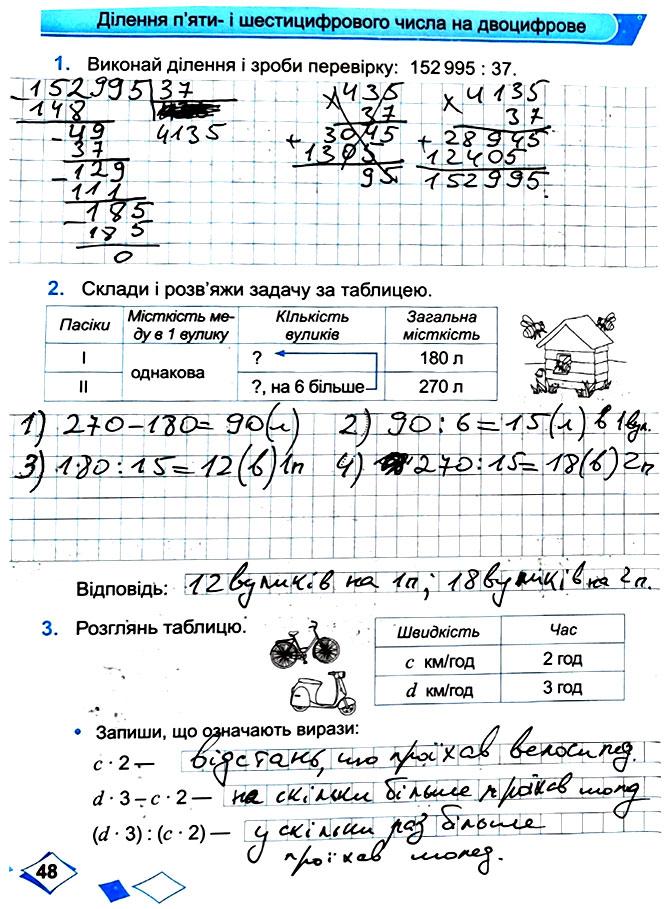 Ділення п'яти- і шестицифрового числа на двоцифрове
1. Виконай ділення і зроби перевірку: 152 995 : 37.
152995 37
148 4135
49
37
129
111
185
185
0
× 435
37
+ 3045
1305
95
× 4135
37
+ 28945
12405
152995
2. Склади і розв'яжи задачу за таблицею.
Пасіки Місткість меду в 1 вулику Кількість вуликів Загальна місткість
І однакова ? 180 л
ІІ ?, на 6 більше 270 л
1) 270 – 180 = 90 (л) 2) 90 : 6 = 15 (л) в 1 вул.
3) 180 : 15 = 12 (в) 1п 4) 270 : 15 = 18 (в) 2п
Відповідь: 12 вуликів на 1п; 18 вуликів на 2п.
3. Розглянь таблицю.
Швидкість Час
c км/год 2 год
d км/год 3 год
• Запиши, що означають вирази:
c · 2 — відстань, що проїхав велосипед.
d · 3 – c · 2 — на скільки більше проїхав мопед
(d · 3) : (c · 2) — у скільки раз більше
проїхав мопед.
48